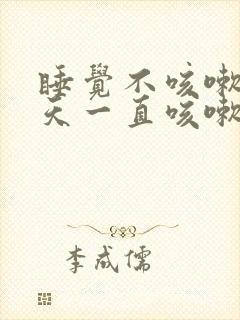 睡覺不咳嗽
天一直咳嗽
李成儒